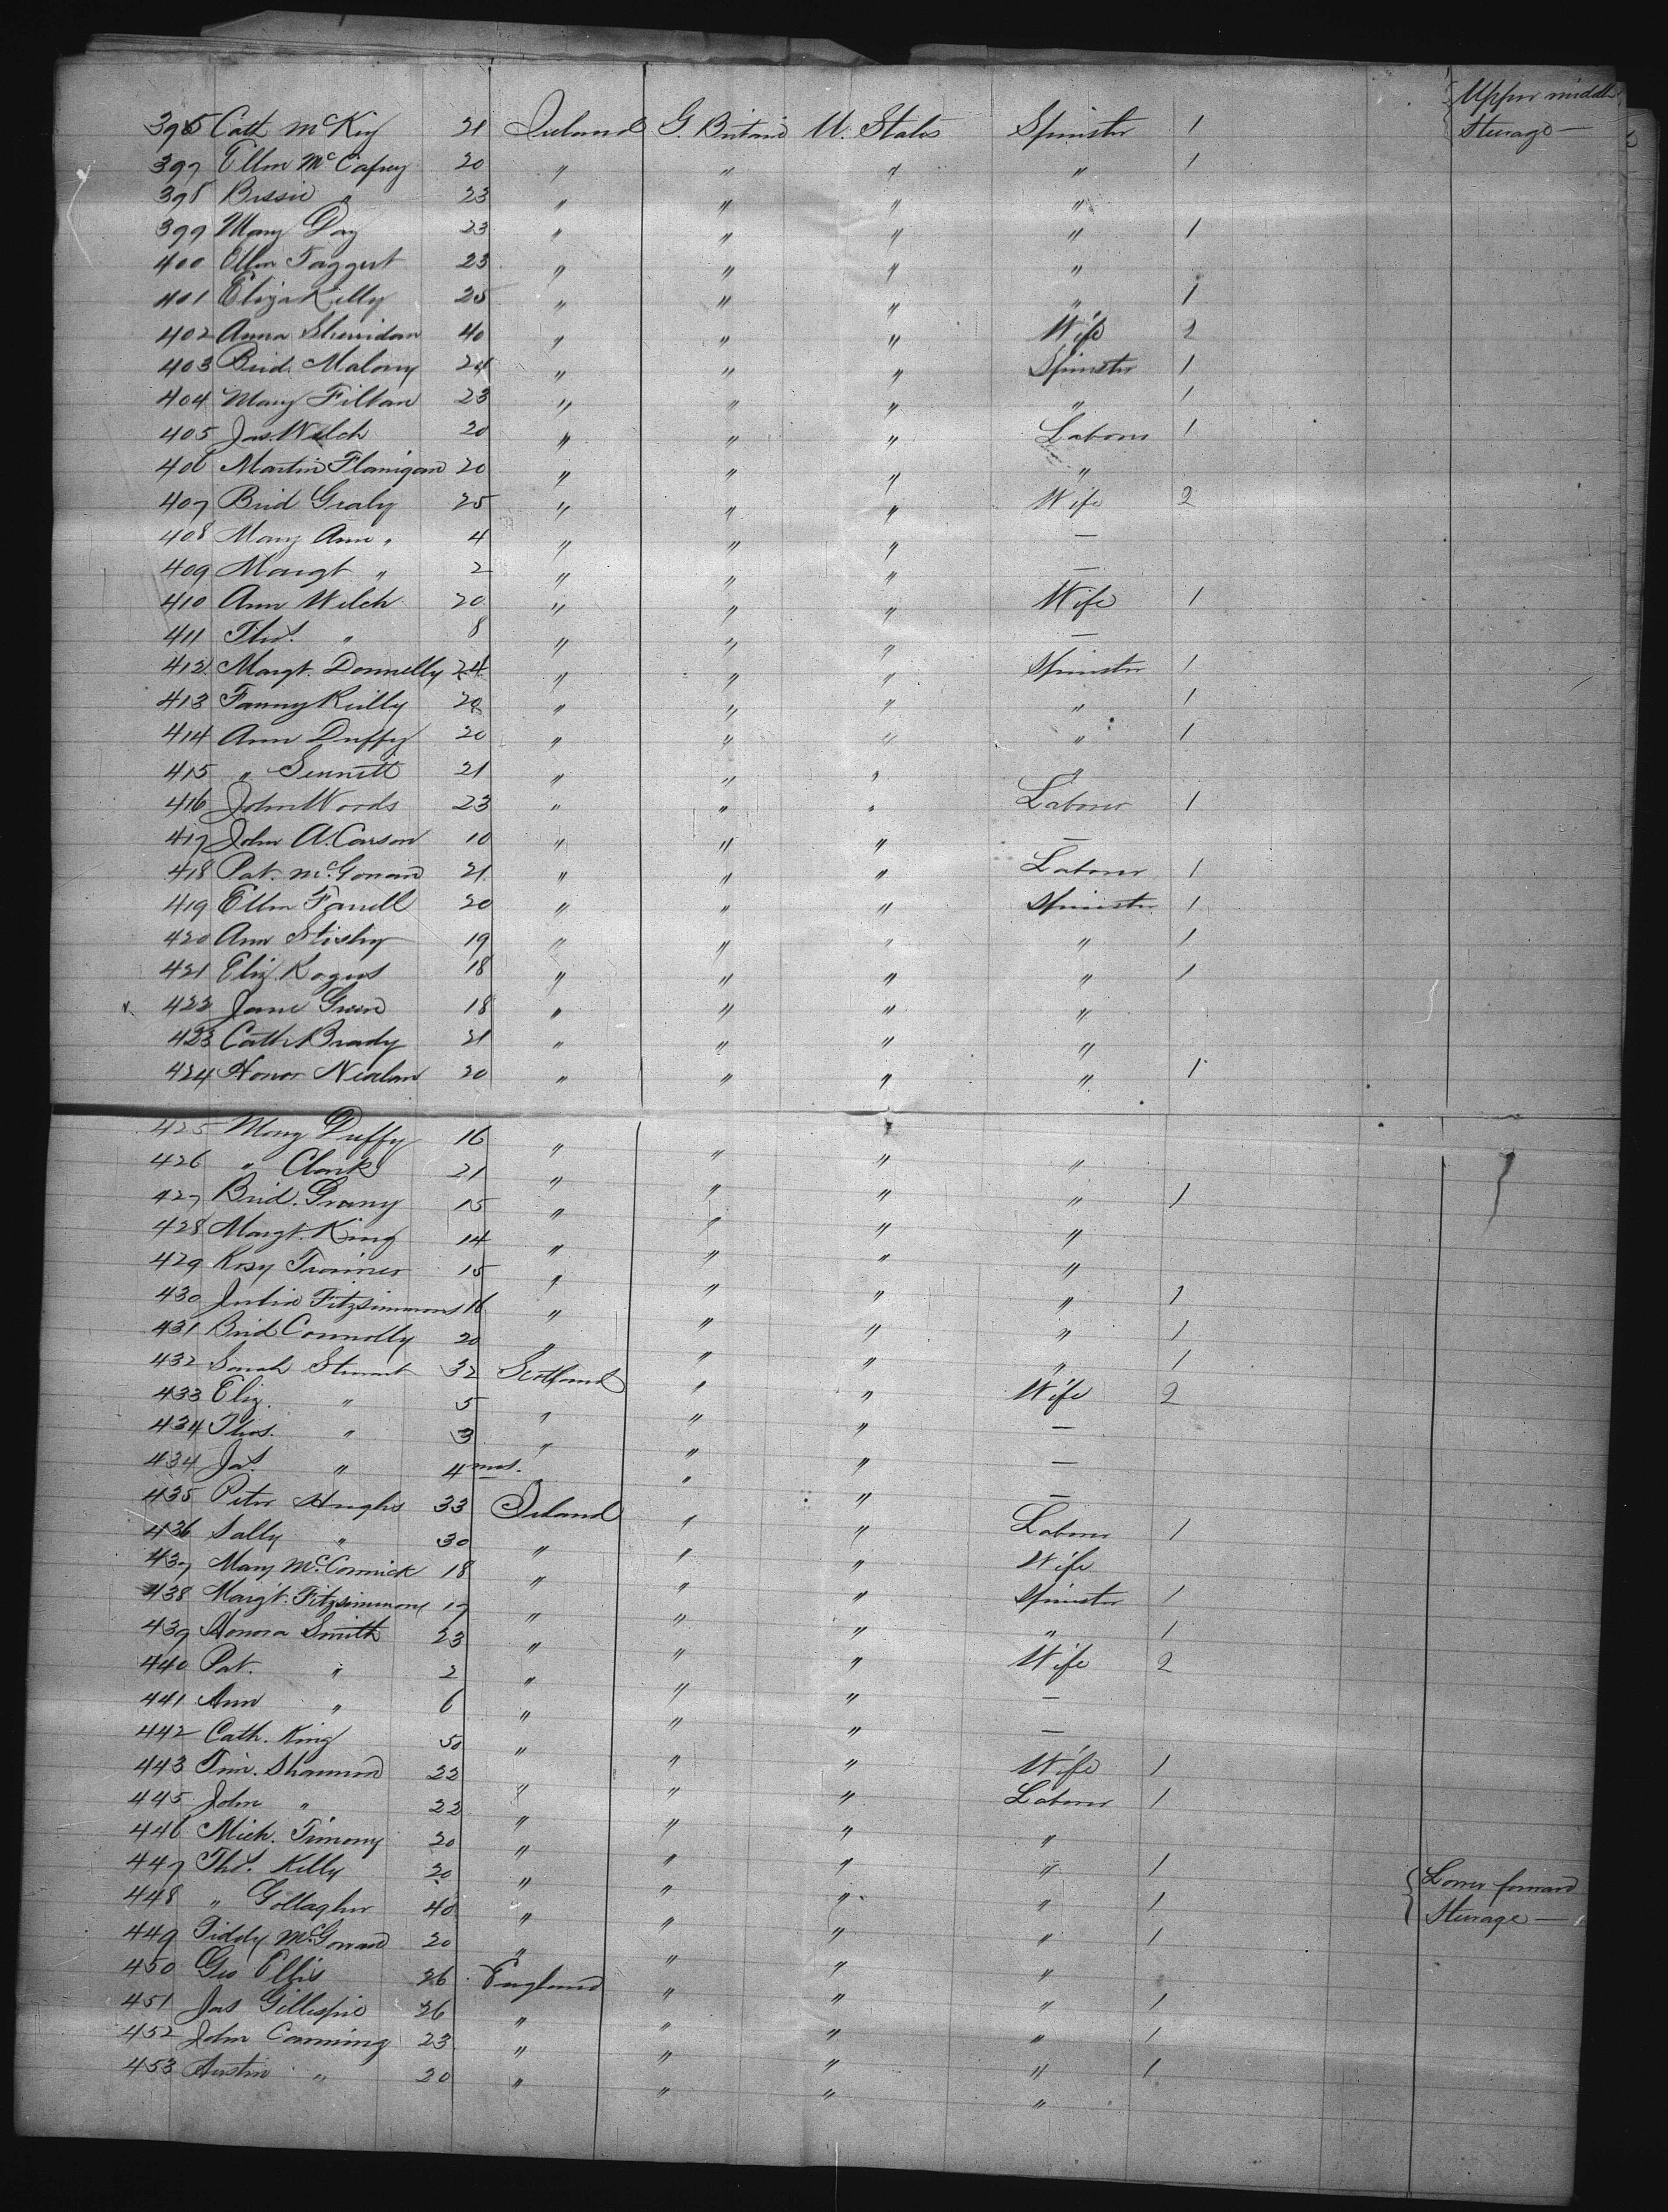 Upper middle
395 Cath McKey 21 Ireland G. Britain U. States Spinster 1 Sterage —
397 Ellen McCafrey 20 " " " " 1
398 Bessie " 23 " " " "
399 Mary Day 23 " " " " 1
400 Ellen Taggert 23 " " " "
401 Eliza Kelly 25 " " " " 1
402 Anna Sherridan 40 " " " Wife 2
403 Brid. Malony 24 " " " Spinster 1
404 Mary 23 " " " " 1
405 Jas. Welch 20 " " " Laborer 1
406 Martin Flanigan 20 " " " "
407 Brid Graly 25 " " " Wife 2
408 Mary Ann " 4 " " " —
409 Margt " 2 " " " —
410 Ann Welch 20 " " " Wife 1
411 Thos. " 8 " " " —
412 Margt. Donnelly 24 " " " Spinster 1
413 Fanny Reilly 20 " " " " 1
414 Ann Duffy 20 " " " " 1
415 " Sennett 21 " " " "
416 John Woods 23 " " " Laborer 1
417 John A. Carson 10 " " " —
418 Pat. McGowan 21 " " " Laborer 1
419 Ellen Farrell 20 " " " Spinster 1
420 Ann 19 " " " " 1
421 Eliz. Rogers 18 " " " " 1
422 Jane Green 18 " " " "
423 Cath Brady 21 " " " "
424 Honor Nealan 20 " " " " 1
425 Mary Duffy 16 " " " "
426 " Clark 21 " " " " 1
427 Brid. Grany 15 " " " "
428 Margt. King 14 " " " "
429 Rosy Trainer 15 " " " " 1
430 Julia Fitzsimmons 16 " " " " 1
431 Brid Connolly 20 " " " " 1
432 Sarah Stewart 32 Scotland " " Wife 2
433 Eliz. " 5 " " " —
434 Thos. " 3 " " " —
434 Jas. " 4 mos. " " —
435 Peter Hughs 33 Ireland " " Laborer 1
436 Sally " 30 " " " Wife
437 Mary McCormick 18 " " " Spinster 1
438 Margt. Fitzsimmons 17 " " " " 1
439 Honora Smith 23 " " " Wife 2
440 Pat. " 2 " " " —
441 Ann " 6 " " " —
442 Cath. King 50 " " " Wife 1
443 Tim. Shannon 22 " " " Laborer 1
445 John " 22 " " " "
446 Mich. Timony 20 " " " " 1
447 Thos. Kelly 20 " " " " 1 Lower forward
448 " Gollagher 40 " " " " 1 Sterage —
449 Tiddy McGowan 20 " " " "
450 Geo Ellis 26 England " " " 1
451 Jas Gillespie 26 " " " " 1
452 John Canning 23 " " " " 1
453 Austin " 20 " " " "